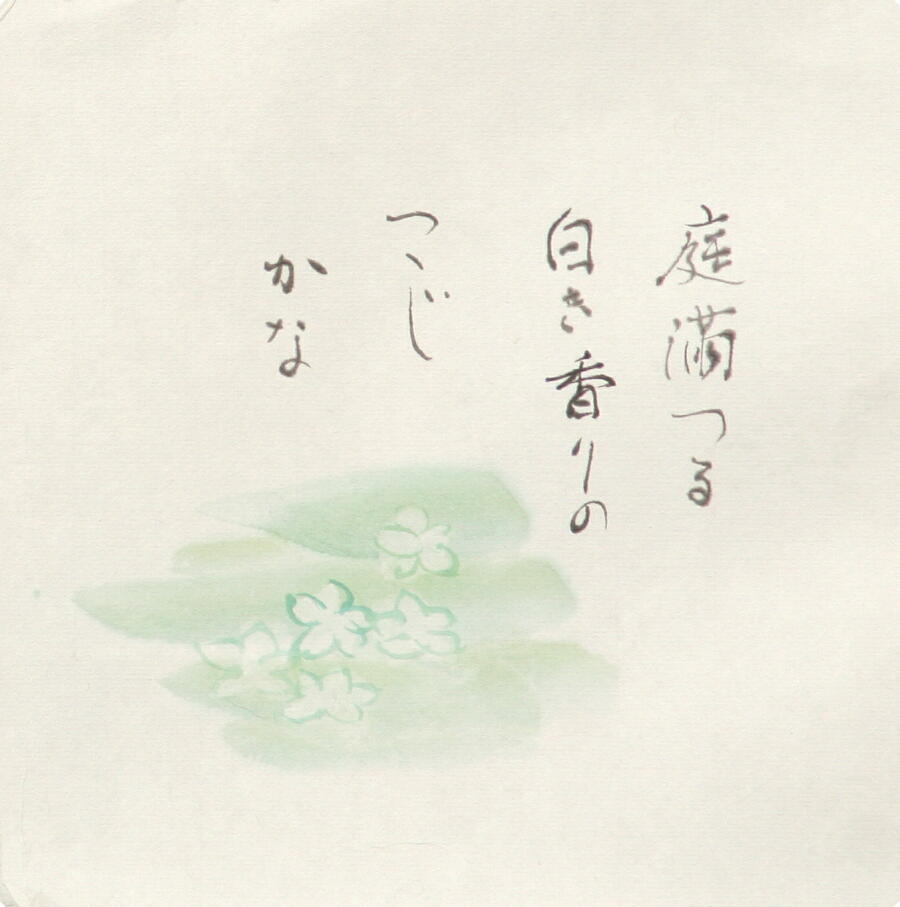 庭満つる
白き香りの
つゝじ
かな